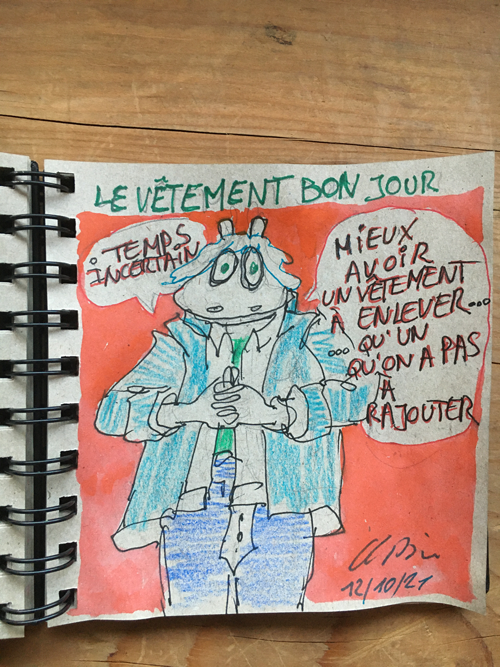 LE VÊTEMENT BON JOUR
TEMPS
INCERTAIN
MIEUX
AVOIR
UN VÊTEMENT
À ENLEVER...
... QU'UN
QU'ON A PAS
À
RAJOUTER
12/10/21